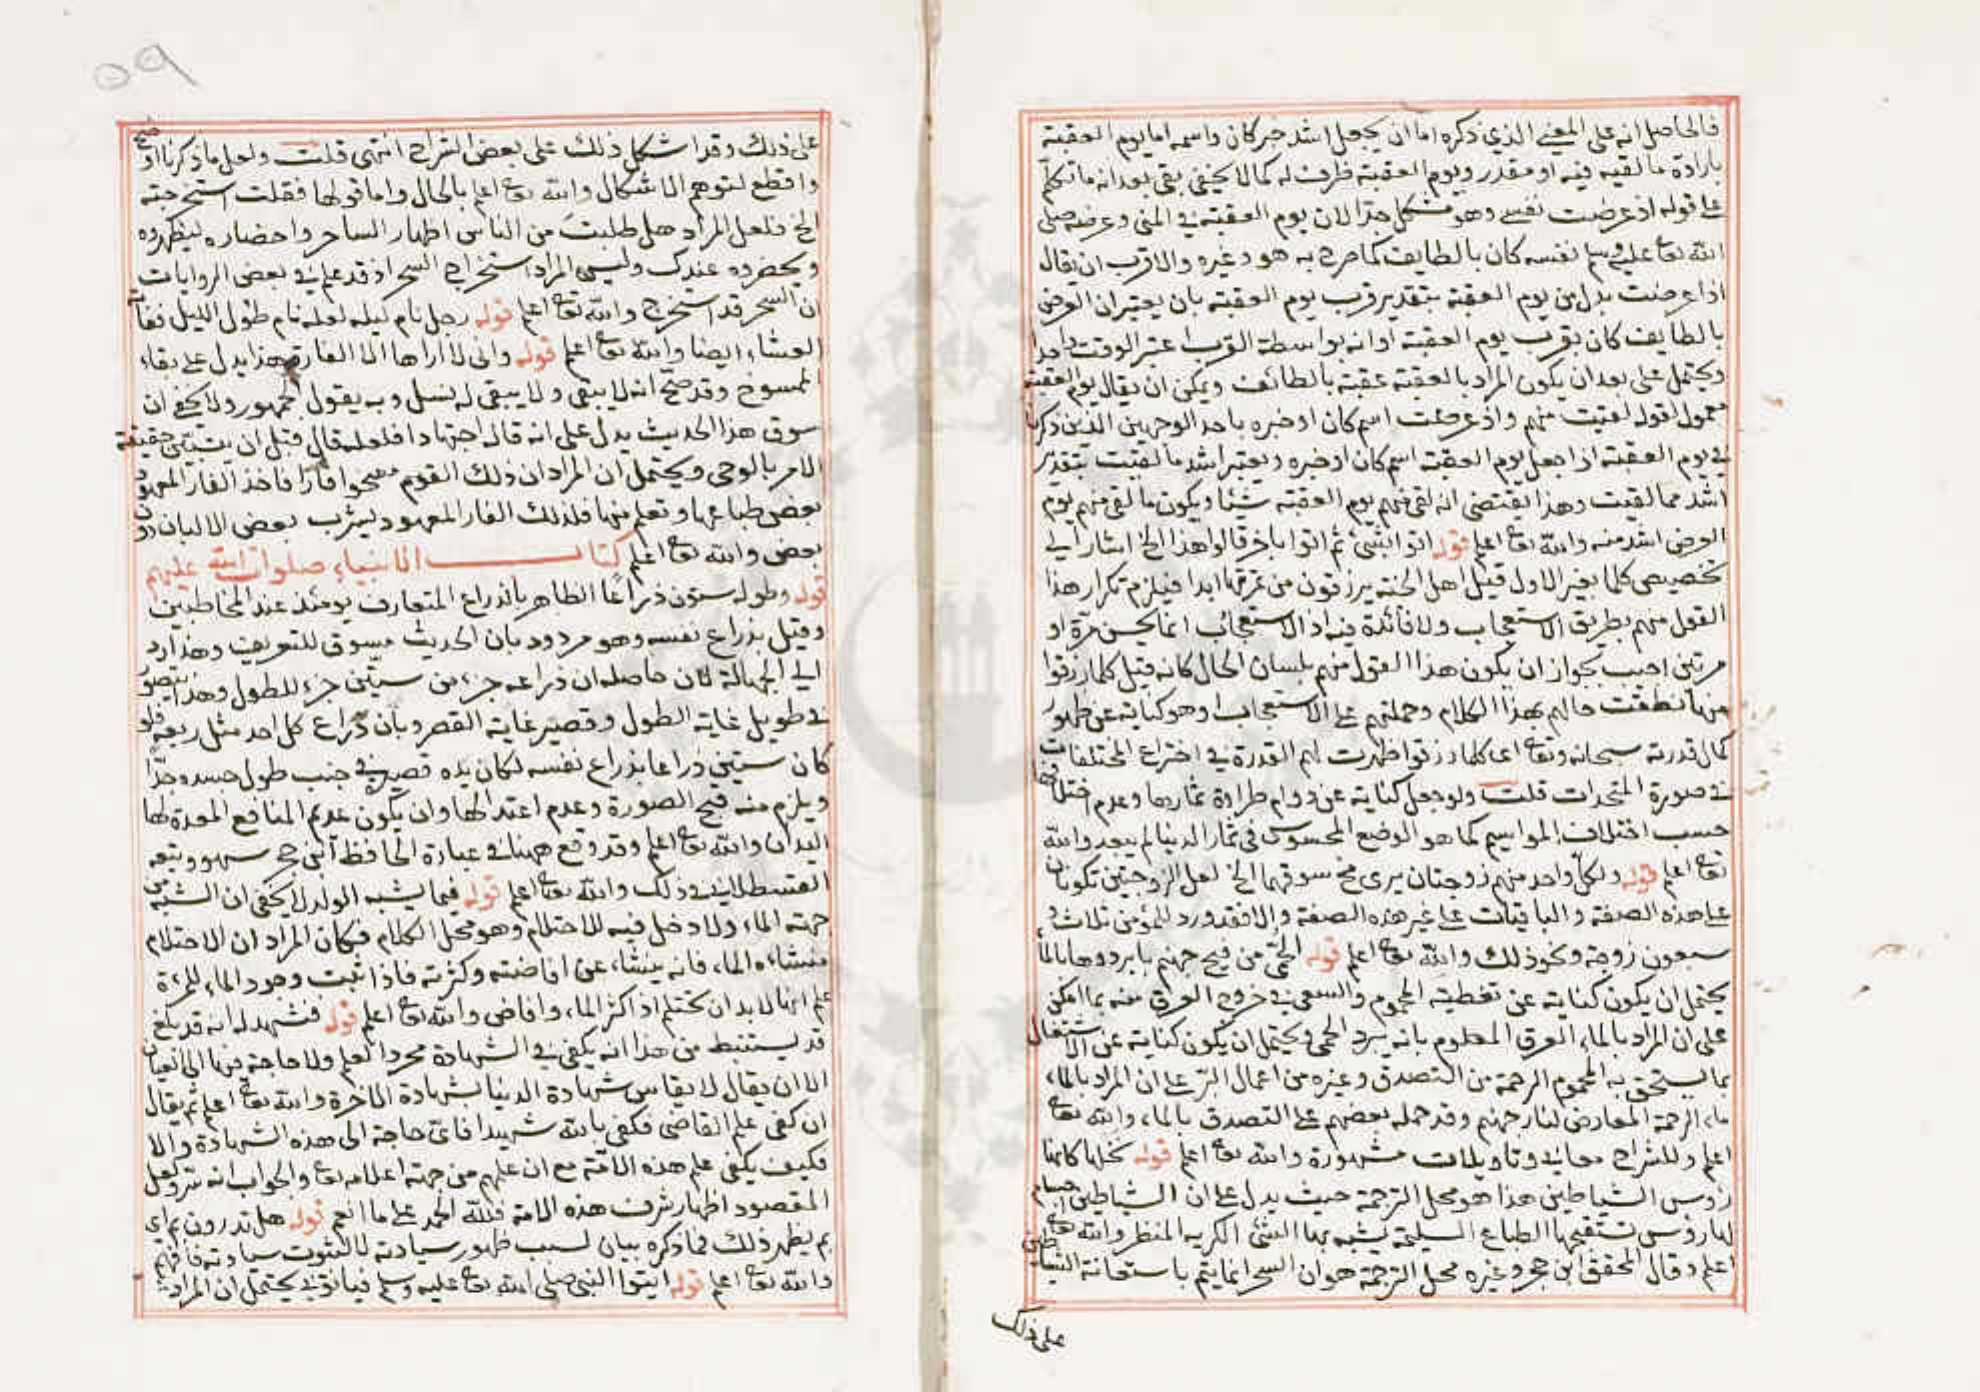 فالحاصل انه على المعنى الذي ذكره اما ان يجعل اشد خبر كان واسمه اما يوم العقبة
بارادة ما لقيه فيه او مقدر ويوم العقبة ظرف له كما لا يخفى بقي بعد انه ما تكلم
على قوله اذ عرضت نفسي وهو مشكل جدا لان يوم العقبة في المنى وعرضه صلى
الله تعا عليه وسلم نفسه كان بالطايف كما صرح به هو وغيره والاقرب ان يقال
اذ اعرضت بدل من يوم العقبة بتقدير قرب يوم العقبة بان يعتبر ان العرض
بالطايف كان بقرب يوم العقبة او انه بواسطة القرب اعتبر الوقت واحدا
ويحتمل على بعد ان يكون المراد بالعقبة عقبة بالطائف ويمكن ان يقال يوم العقبة
معمول لقوله لقيت منهم واذ عرضت اسم كان او خبره باحد الوجهين الذين ذكرنا
في يوم العقبة اذا جعل يوم العقبة اسم كان او خبره ويعتبر اشد ما لقيت بتقدير
اشد مما لقيت وهذا يقتضي انه لقي منهم يوم العقبة شيئا ويكون ما لقي منهم يوم
العرض اشد منه والله تعا اعلم قوله اتوا بشئ ثم اتوا باخر قالوا هذا الخ اشار الى
تخصيص كلما بغير الاول قيل اهل الجنة يرزقون من ثمرتها ابدا فيلزم تكرار هذا
القول منهم بطريق الاستعجاب ولا فائدة فيه اذ الاستعجاب انما يحسن مرة او
مرتين اجيب بجواز ان يكون هذا القول منهم بلسان الحال كانه قيل كلما رزقوا
منها نطقت حالهم بهذا الكلام وحملتهم على الاستعجاب وهو كناية عن ظهور
كمال قدرته سبحانه وتعا اي كلما رزقوا ظهرت لهم القدرة في اختراع المختلفات
في صورة المتحدات قلت ولو جعل كناية عن دوام طراوة ثمارها وعدم اختلافها
حسب اختلاف المواسيم كما هو الوضع المحسوس في ثمار الدنيا لم يبعد والله
تعا اعلم قوله ولكل واحد منهم زوجتان يرى مخ سوقهما الخ لعل الزوجتين تكونان
على هذه الصفة والباقيات على غير هذه الصفة والا فقد ورد للمؤمن ثلاث و
سبعون زوجة ونحو ذلك والله تعا اعلم قوله الحمى من فيح جهنم فابردوها بالماء
يحتمل ان يكون كناية عن تغطية المحموم والسعي في خروج العرق منه بما امكن
على ان المراد بالماء العرق المعلوم بانه يبرد الحمى ويحتمل ان يكون كناية عن الاشتغال
بما يستحق به المحموم الرحمة من التصدق وغيره من اعمال البر على ان المراد بالماء
ماء الرحمة المعارض لنار جهنم وقد حمله بعضهم على التصدق بالماء والله تعا
اعلم وللشراح معان وتاويلات مشهورة والله تعا اعلم قوله نخلها كانها
رؤس الشياطين هذا هو محل الترجمة حيث يدل على ان الشياطين اجسام
لها رؤس تستقبحها الطباع السليمة يشبه بها الشئ الكريه المنظر والله تعا
اعلم وقال المحقق ابن حجر وغيره محل الترجمة هو ان السحر انما يتم باستعانة الشياطين
على ذلك
٥٩
على ذلك وقد اشكل ذلك على بعض الشراح انتهى قلت ولعل ما ذكرنا اوضح
واقطع لتوهم الاشكال والله تعا اعلم بالحال واما قولها فقلت استخرجته
الخ فلعل المراد هل طلبت من الناس اظهار الساحر واحضاره ليظهروه
ويحضروه عندك وليس المراد استخراج السحر اذ قد علم في بعض الروايات
ان السحر قد استخرج والله تعا اعلم قوله رجل نام ليله لعله نام طول الليل ففاته
العشاء ايضا والله تعا اعلم قوله واني لا اراها الا الفارة هذا يدل على بقاء
الممسوخ وقد صح انه لا يبقى ولا يبقى له نسل وبه يقول الجمهور ولا يخفى ان
سوق هذا الحديث يدل على انه قاله اجتهادا فلعله قال قبل ان يتبين حقيقة
الامر بالوحي ويحتمل ان المراد ان ذلك القوم مسخوا فارا فاخذ الفار المعهود
بعض طباعها وتعلم منها فلذلك الفار المعهود ليشرب بعض الالبان دون
بعض والله تعا اعلم كتاب الانبياء صلوات الله عليهم
قوله وطوله ستون ذراعا الظاهر بالذراع المتعارف يومئذ عند المخاطبين
وقيل بذراع نفسه وهو مردود بان الحديث مسوق للتعريف وهذا رد
الى الجهالة لان حاصله ان ذراعه جزء من ستين جزء للطول وهذا يتصور
في طويل غاية الطول وقصير غاية القصر وبان ذراع كل احد مثل ربعه فلو
كان ستين ذراعا بذراع نفسه لكان يده قصيرة في جنب طول جسده جدا
ويلزم منه قبح الصورة وعدم اعتدالها وان يكون عديم المنافع المعدة لها
اليدان والله تعا اعلم وقد وقع ههنا في عبارة الحافظ ابن حجر سهو وتبعه
القسطلاني في ذلك والله تعا اعلم قوله فيما يشبه الولد لا يخفى ان الشبه من
جهة الماء ولا دخل فيه للاحتلام وهو محل الكلام فكان المراد ان الاحتلام
منشاءه الماء فانه ينشاء عن افاضته وكثرته فاذا ثبت وجود الماء للمرءة
علم انها لا بد ان تحتلم اذا كثر الماء وافاض والله تعا اعلم قوله فنشهد له انه قد بلغ
قد يستنبط من هذا انه يكفي في الشهادة مجرد العلم ولا حاجة فيها الى العيان
الا ان يقال لا يقاس شهادة الدنيا بشهادة الاخرة والله تعا اعلم ثم يقال
ان كفى علم القاضي فكفى بالله شهيدا فاي حاجة الى هذه الشهادة والا
فكيف يكفي علم هذه الامة مع ان علمهم من جهة اعلامه تعا والجواب انه
المقصود اظهار شرف هذه الامة فلله الحمد على ما انعم قوله هل تدرون بم اي
بم يظهر ذلك فما ذكره بيان لسبب ظهور سيادته لا لثبوت سيادته فافهم
والله تعا اعلم قوله ايتوا النبي صلى الله تعا عليه وسلم فياتوني يحتمل ان المراد